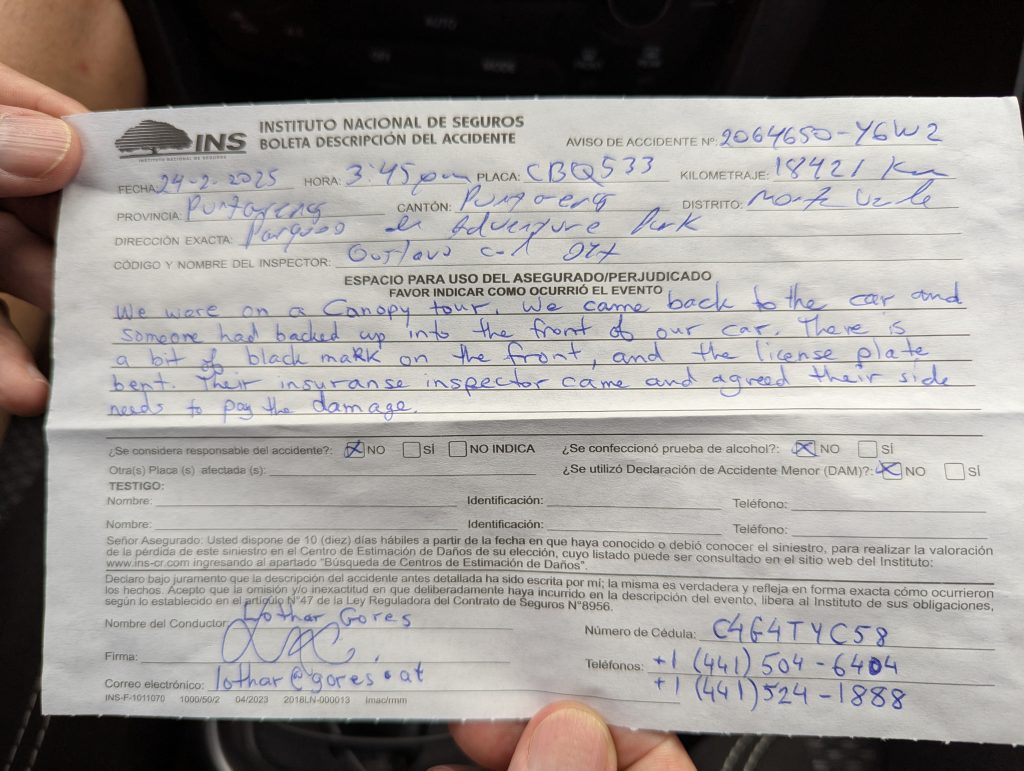 INS
INSTITUTO NACIONAL DE SEGUROS
INSTITUTO NACIONAL DE SEGUROS
BOLETA DESCRIPCIÓN DEL ACCIDENTE
AVISO DE ACCIDENTE Nº: 2064650-Y6W2
FECHA: 24-2-2025 HORA: 3:45pm PLACA: CBQ533 KILOMETRAJE: 18421 Km
PROVINCIA: CANTÓN: DISTRITO:
DIRECCIÓN EXACTA: Adventure Park
CÓDIGO Y NOMBRE DEL INSPECTOR: Gustavo
ESPACIO PARA USO DEL ASEGURADO/PERJUDICADO
FAVOR INDICAR COMO OCURRIÓ EL EVENTO
We were on a Canopy tour. We came back to the car and
someone had backed up into the front of our car. There is
a bit of black maRK on the front, and the license plate
bent. Their insuranse inspector came and agreed their side
needs to pay the damage.
¿Se considera responsable del accidente?: NO SÍ NO INDICA ¿Se confeccionó prueba de alcohol?: NO SÍ
Otra(s) Placa (s) afectada (s): ¿Se utilizó Declaración de Accidente Menor (DAM)?: NO SÍ
TESTIGO:
Nombre: Identificación: Teléfono:
Nombre: Identificación: Teléfono:
Señor Asegurado: Usted dispone de 10 (diez) días hábiles a partir de la fecha en que haya conocido o debió conocer el siniestro, para realizar la valoración
de la pérdida de este siniestro en el Centro de Estimación de Daños de su elección, cuyo listado puede ser consultado en el sitio web del Instituto:
www.ins-cr.com ingresando al apartado "Búsqueda de Centros de Estimación de Daños".
Declaro bajo juramento que la descripción del accidente antes detallada ha sido escrita por mí; la misma es verdadera y refleja en forma exacta cómo ocurrieron
los hechos. Acepto que la omisión y/o inexactitud en que deliberadamente haya incurrido en la descripción del evento, libera al Instituto de sus obligaciones,
según lo establecido en el artículo N°47 de la Ley Reguladora del Contrato de Seguros N°8956.
Nombre del Conductor: Lothar Gores Número de Cédula: C4G4TYC58
Firma: Teléfonos: +1 (441) 504-6404
Correo electrónico: lothar@gores.at +1 (441) 524-1888
INS-F-1011070 1000/50/2 04/2023 2018LN-000013 lmac/rmm